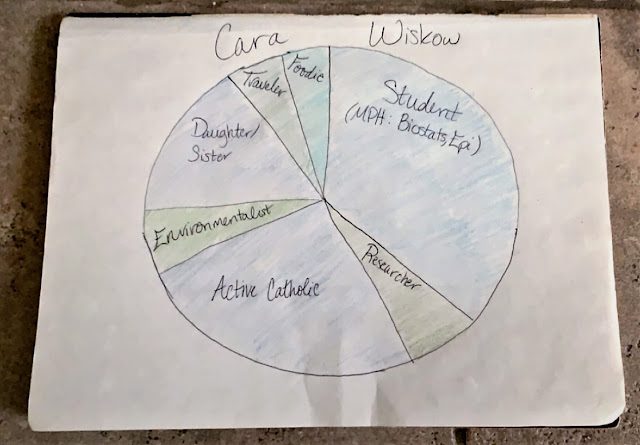 Cara Wiskow
Foodie
Traveler
Student
(MPH: Biostats, Epi)
Daughter/
Sister
Environmentalist
Researcher
Active Catholic